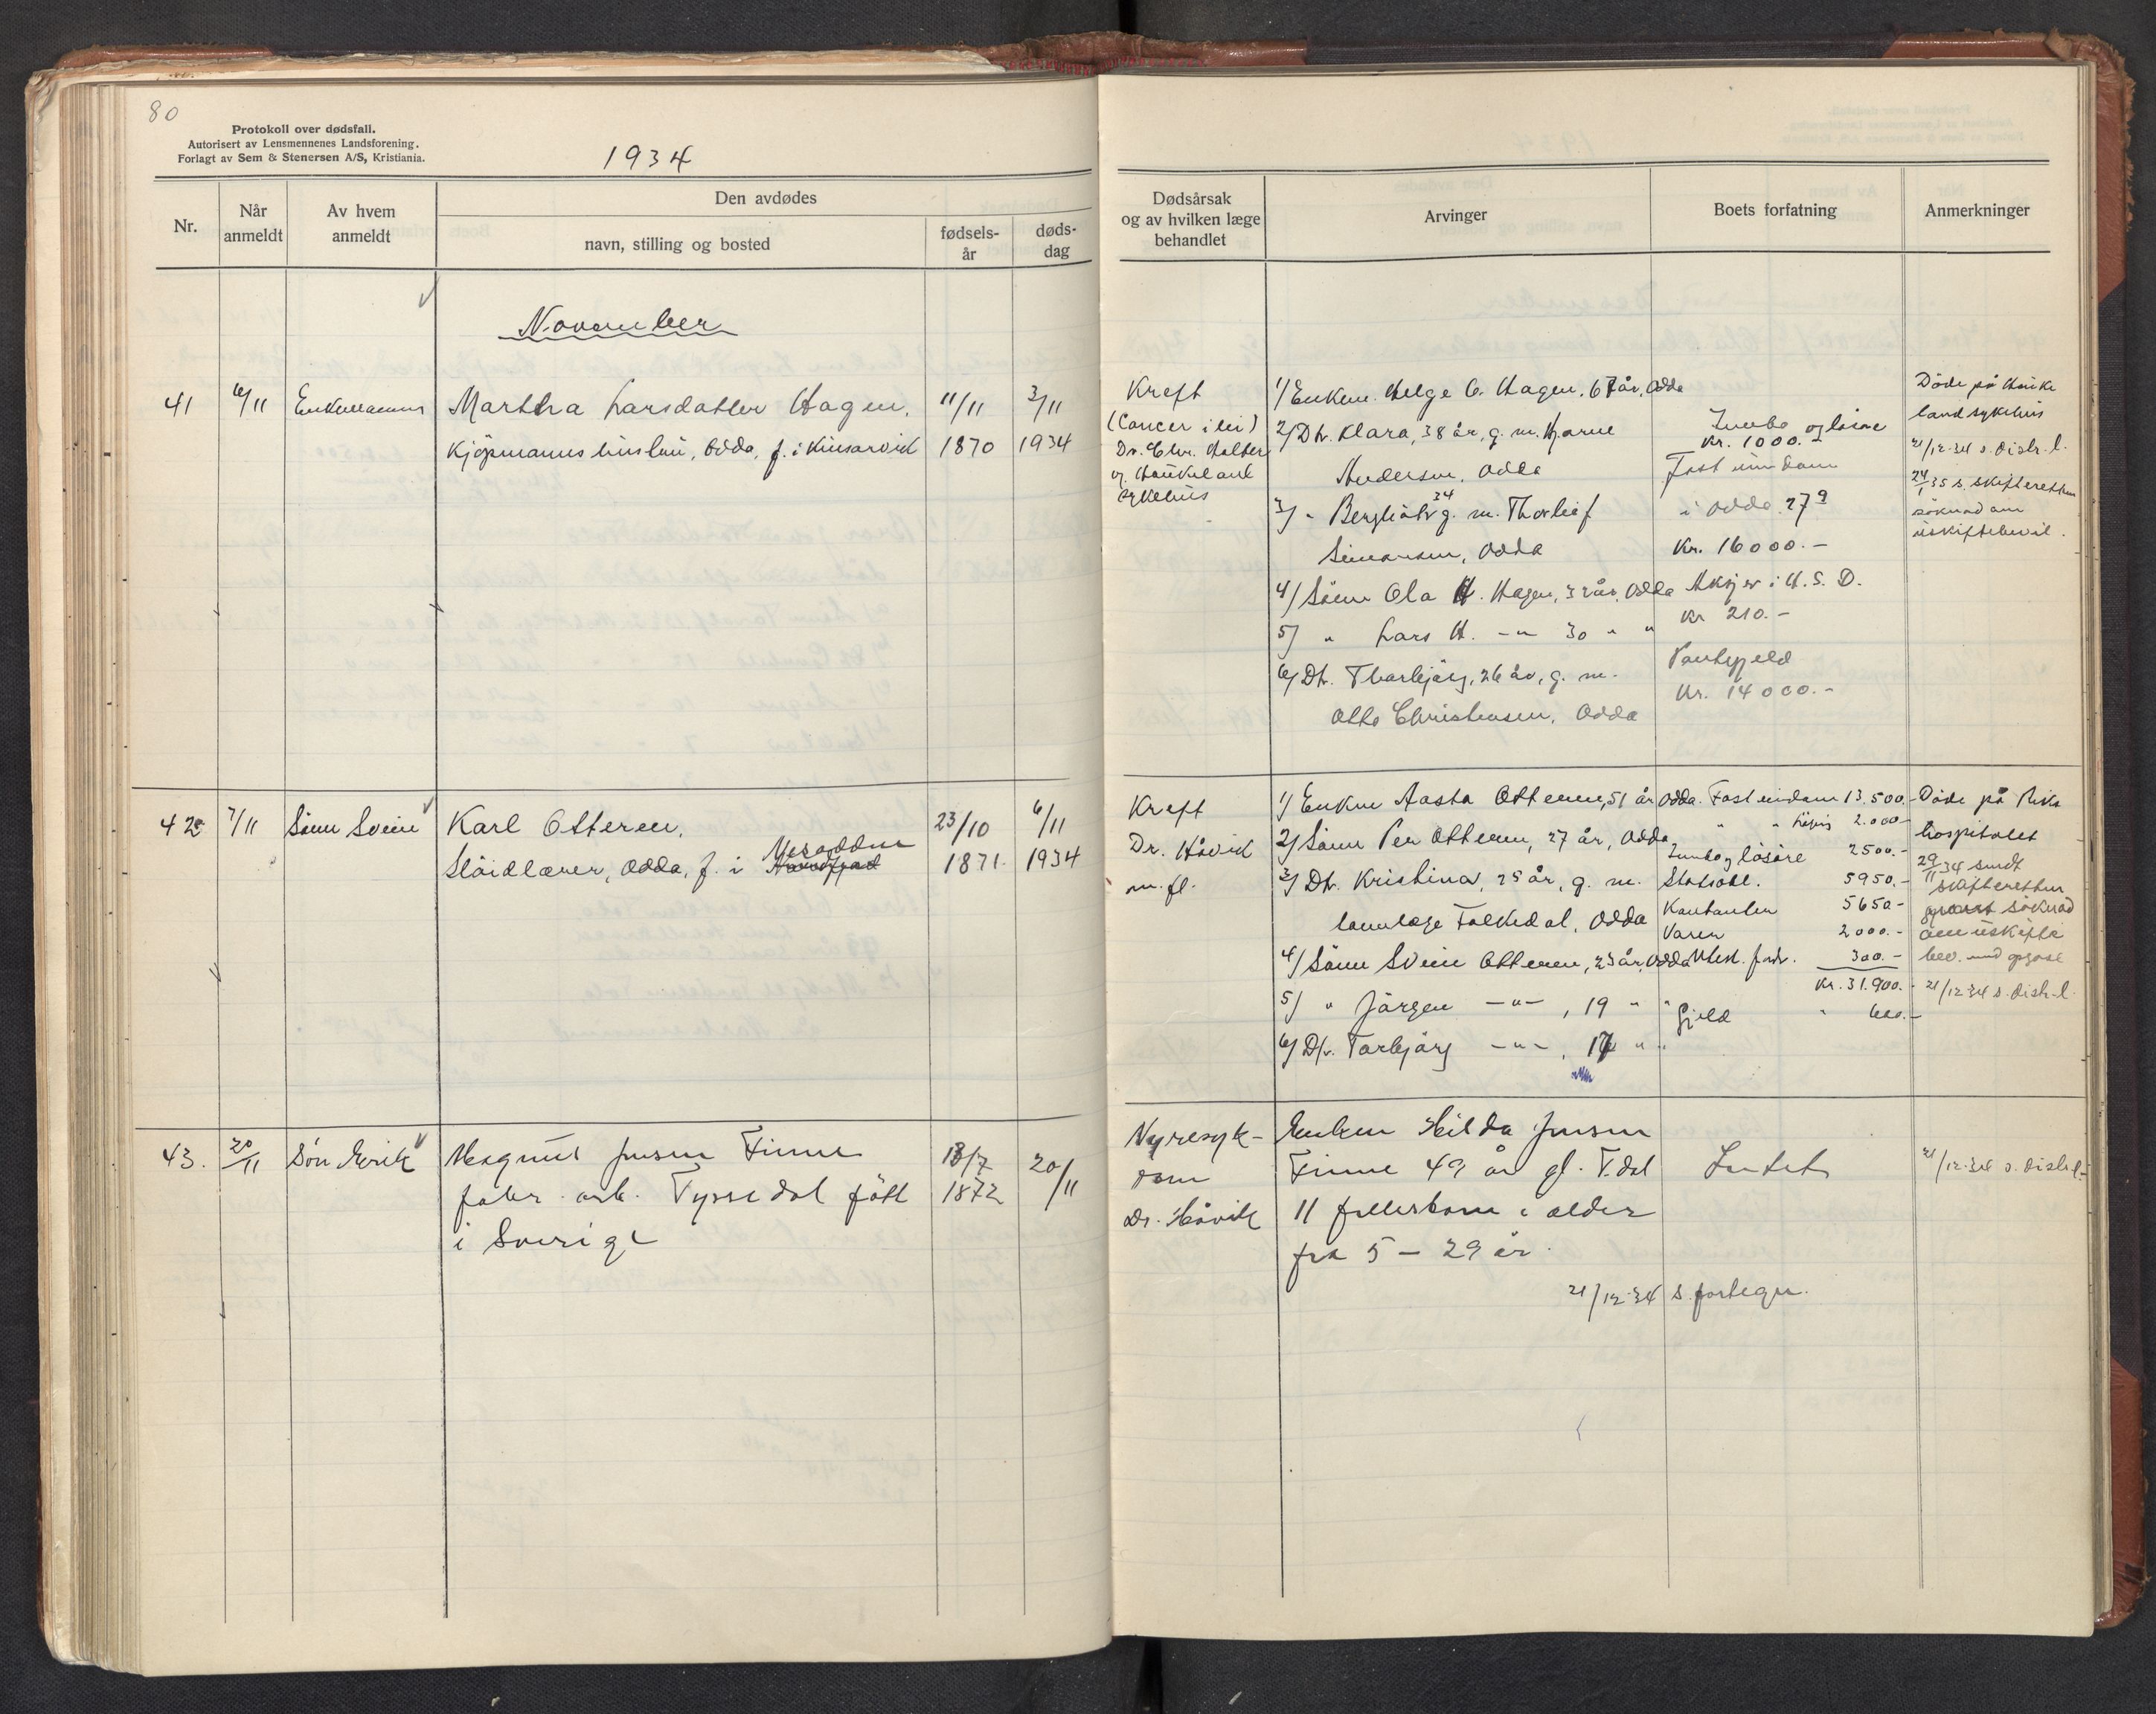 80
Protokoll over dødsfall.
Autorisert av Lensmennenes Landsforening.
Forlagt av Sem & Stenersen A/S, Kristiania.
1934
Nr.
Når anmeldt
Av hvem anmeldt
Den avdødes
navn, stilling og bosted
fødsels-
år
døds-
dag
Dødsårsak
og av hvilken læge
behandlet
Arvinger
Boets forfatning
Anmerkninger
November
41
6/11
Enkemannen
Martha Larsdatter Hagen,
Kjöpmanns hustru, Odda, f. i Kinsarvik
11/11
1870
3/11
1934
Kreft
(Cancer
Dr. Chr. Halter
og Haukeland
sykehus
1/ Enkem. Helge O. Hagen, 67 år, Odda
2/ Dtr. Klara, 38 år, g. m. Hjarne
Andersen, Odda
3/ " Bergliot 34 g. m. Thorleif
Simonsen, Odda
4/ Sönn Ola H. Hagen, 32 år, Odda
5/ " Lars H. -"- 30 " "
6/ Dtr. Thorbjörg, 26 år, g. m.
Otto Christensen, Odda
Innbo og lösöre
Kr. 1000.-
Fast eiendom
i Odda 27
Kr. 16000.-
Aksjer i H. S. D.
Kr 210.-
Pantegjeld
Kr. 14000.-
Döde på Hauke
land sykehus
21/12-34 s. distr. l.
24/1 35 s. skifteretten
söknad om
uskiftebevil.
42
7/11
Sönn Svein
Karl Otteren,
Slöidlærer, Odda, f. i
23/10
1871.
6/11
1934
Kreft
Dr. Håvik
m. fl.
1/ Enken Aasta Otteren, 51 år Odda
2/ Sönn Per Otteren, 27 år, Odda
3/ Dtr. Kristina, 25 år, g. m.
tannlæge Folkedal, Odda
4/ Sönn Svein Otteren, 23 år, Odda
5/ " Jörgen -"- , 19 " "
6/ Dtr. Torbjörg -"- , 17 " "
Fast eiendom 13.500.-
" " 2.000-
Innbo og lösöre 2500.-
Statsobl. 5950.-
Kontanter 5650.-
Varer 2000.-
Utest. fordr. 300.-
Kr. 31.900.-
Gjeld " 600.-
Döde på Riks
hospitalet
29/11 34 sendt
skifteretten
söknad
om uskifte
bev. med oppgave
21/12-34 s. distr. l.
43.
20/11
Sön Erik
Magnus Jensen Finne
fabr. arb. Tyssedal född
i Sverige
18/7
1872
20/11
Nyresyk-
dom
Dr. Håvik
Enken Hilda Jensen
Finne 49 år gl. T.dal
11 fellesbarn i alder
fra 5 - 29 år.
21/12-34 s. fortegn.
Intet
21/12-34 s. distr. l.